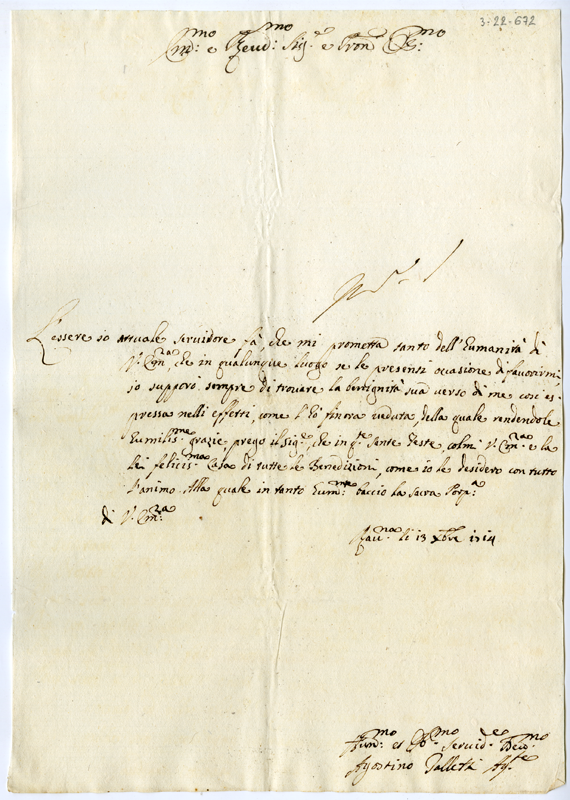 3-22-672
Em:mo e Reud:mo Sig:re e Pron Col:mo
L'essere io attuale servidore fà, che mi prometta tanto dell'Eumanità di
V. Em:za, che in qualunque luogo se le presenti occasione di favorirmi,
io supporò sempre di trovare la benignità sua verso di me così es-
pressa nelli effetti, come l'hò finora veduta, della quale rendendole
Eumilis:me grazie, prego il sig:re, che in q:te sante feste, colmi V. Em:za e la
lei felicis:ma Casa di tutte le Benedizioni, come io le desidero con tutto
l'animo. Alla quale in tanto Eum:me baccio la sacra Porp:a
di V. Em:za
Rau:na li 13 Xbre 1714
Hum:mo et Ob:mo Servid:e Deu:mo
Agostino